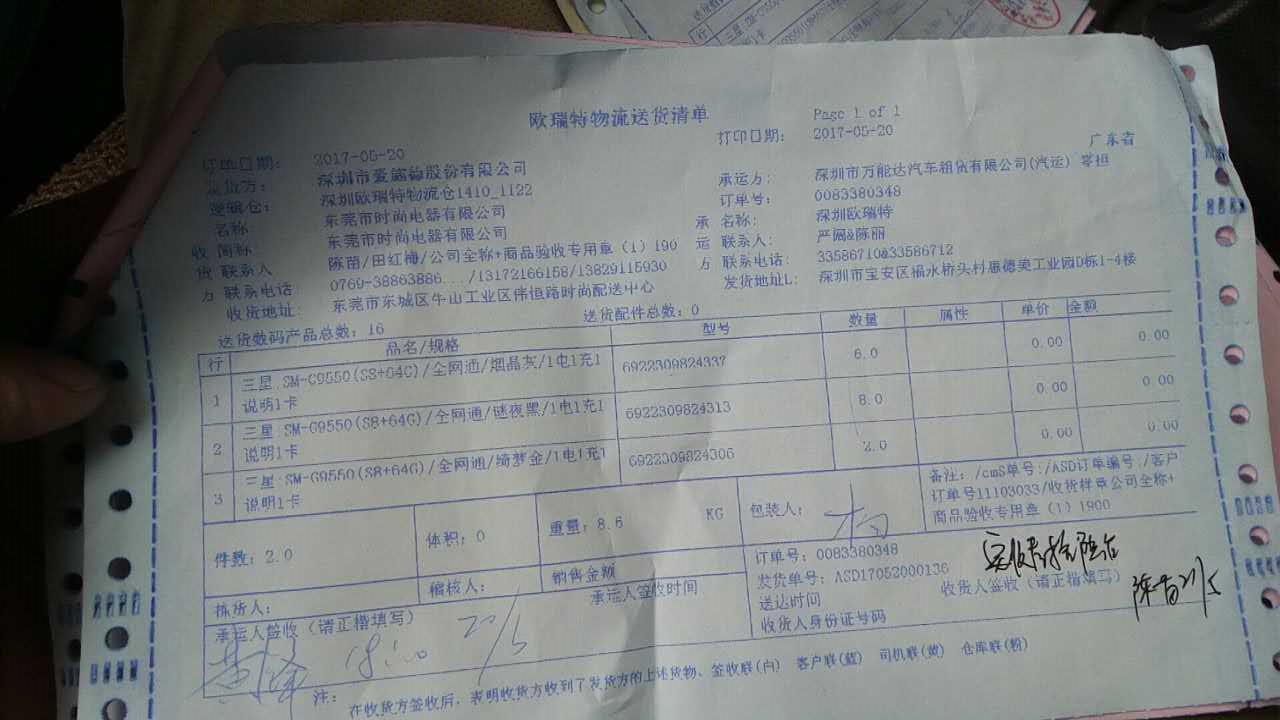 欧瑞特物流送货清单
Page 1 of 1
打印日期： 2017-05-20
打印日期： 2017-05-20
广东省
发货方： 深圳市爱施德股份有限公司
承运方： 深圳市万能达汽车租赁有限公司(汽运) 零担
逻辑仓： 深圳欧瑞特物流仓1410_1122
订单号： 0083380348
名称 东莞市时尚电器有限公司
承 名称： 深圳欧瑞特
收 简称 东莞市时尚电器有限公司
运 联系人： 严阔&陈丽
货 联系人 陈苗/田红梅/公司全称+商品验收专用章（1）190
方 联系电话： 33586710@33586712
方 联系电话： 0769-38863886..../13172166158/13829115930
发货地址L： 深圳市宝安区福永桥头村惠德美工业园D栋1-4楼
收货地址： 东莞市东城区牛山工业区伟恒路时尚配送中心
送货数码产品总数：16
送货配件总数：0
行 品名/规格 型号 数量 属性 单价 金额
1 三星 SM-G9550(S8+64G)/全网通/烟晶灰/1电1充1 6922309824337 6.0 0.00 0.00
说明1卡
2 三星 SM-G9550(S8+64G)/全网通/谜夜黑/1电1充1 6922309824313 8.0 0.00 0.00
说明1卡
3 三星 SM-G9550(S8+64G)/全网通/绮梦金/1电1充1 6922309824306 2.0 0.00 0.00
说明1卡
件数：2.0
体积：0
重量：8.6 KG
包装人：
备注：/cmS单号:/ASD订单编号:/客户
订单号11103033/收货样章公司全称+
商品验收专用章（1）1900
拣货人：
稽核人：
销售金额
订单号：0083380348
发货单号：ASD17052000136
送达时间
收货人签收（请正楷填写）
收货人身份证号码
承运人签收（请正楷填写）
承运人签收时间
18:00 20/5
陈苗 21/5
注： 在收货方签收后，表明收货方收到了发货方的上述货物、签收联(白) 客户联(蓝) 司机联(黄) 仓库联(粉)